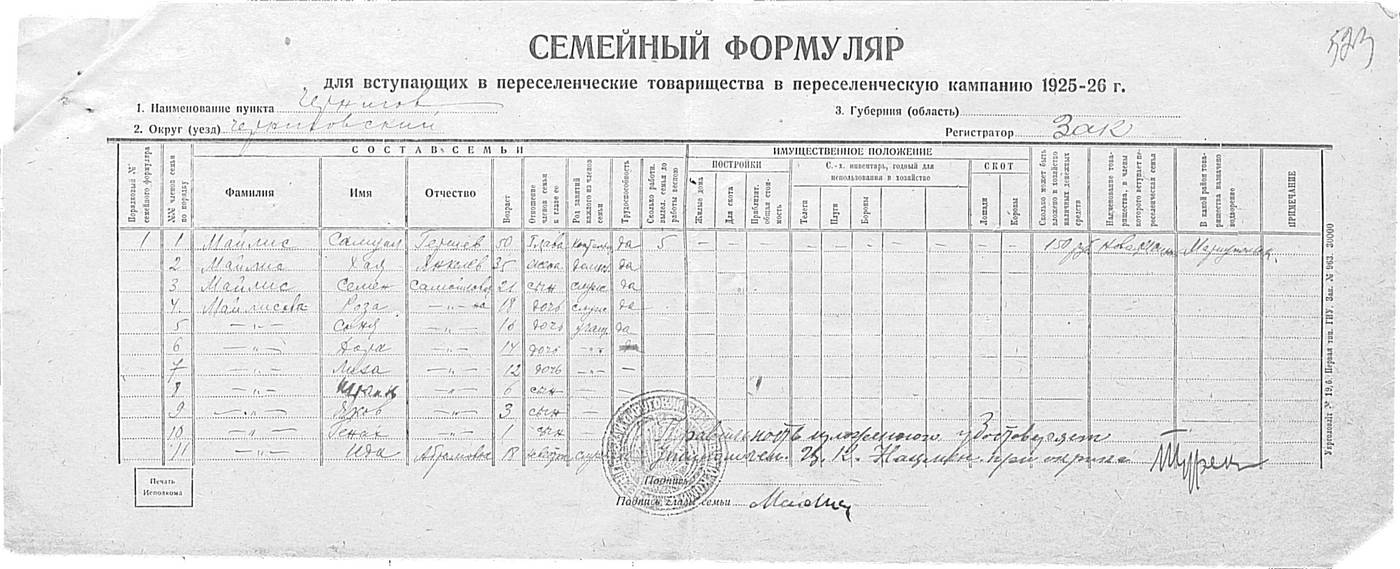 523
СЕМЕЙНЫЙ ФОРМУЛЯР
для вступающих в переселенческие товарищества в переселенческую кампанию 1925-26 г.
1. Наименование пункта Чернигов
3. Губерния (область)
2. Округ (уезд) Черниговский
Регистратор Зак
СОСТАВ СЕМЬИ
ИМУЩЕСТВЕННОЕ ПОЛОЖЕНИЕ
Порядковый № семейного формуляра
№№ членов семьи по порядку
Фамилия
Имя
Отчество
Возраст
Отношение членов семьи к главе ее
Род занятий каждого из членов семьи
Трудоспособность
Сколько работн. выдел. семья до работы весною
ПОСТРОЙКИ
Жилые дома
Для скота
Приблизит. общая стоимость
С.-х. инвентарь, годный для использования в хозяйстве
Телеги
Плуги
Бороны
СКОТ
Лошади
Коровы
Сколько может быть вложено в хозяйство наличных денежных средств
Наименование товарищества, в члены которого вступает переселенческая семья
В какой район товарищества назначено водворение
ПРИМЕЧАНИЕ
1 1 Майлис Самуил Гершев 50 Глава да 5 — — — — — — — — 150 руб
2 Майлис Хая Янкелев 35 да
3 Майлис Семен Самойлов 21 сын служ да
4 Майлисова Роза —"— на 18 дочь служ да
5 —"— Соня —"— 16 дочь учащ да
6 —"— Дора —"— 14 дочь —"—
7 —"— Лиза —"— 12 дочь —"— —
8 —"— —"— 6 сын — —
9 —"— Яков —"— 3 сын — —
10 —"— Генах —"— 1 сын —
11 —"— Ида Абрамовна 18 служ
Правильность изложенного удостоверяет
Нацмен при
Печать Исполкома
Подпись
Подпись главы семьи